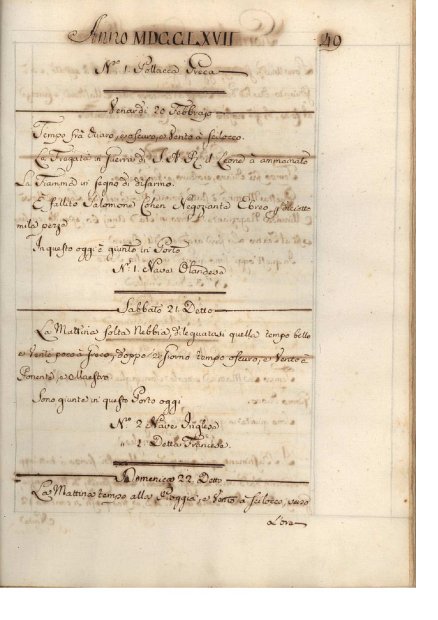 Anno MDCCLXVII 49
N.º 1 Pollacca Greca
Venardi 20 Febbrajo
Tempo frà chiaro, e oscuro, e Vento à scilocco.
La Fregata in guerra di S. A. R. il Leone à ammainato
La Fiamma in segno di disarmo.
È fallito Salomone Cohen Negoziante Ebreo
mila pezze
In questo oggi è giunto in Porto
N.º 1 Nave Olandese
Sabbato 21 Detto
La Mattina folta Nebbia, dileguatasi quella tempo bello
e Vento poco à greco, e doppo giorno tempo oscuro, e Vento à
Ponente, e Maestro
Sono giunte in questo Porto oggi
N.º 2 Nave Inglese
1 Detta Francese
Domenica 22 Detto
La Mattina tempo alla Pioggia, e Vento à scilocco, verso
L'ora